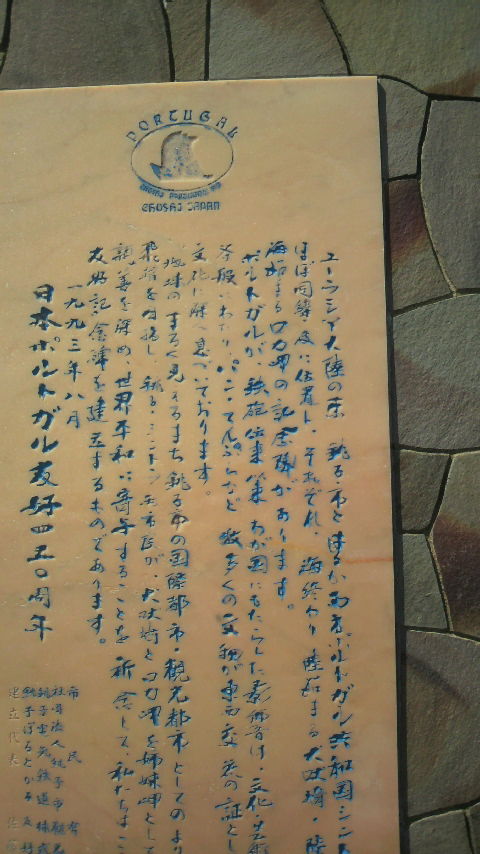 PORTUGAL
CHOSHI JAPAN
ユーラシア大陸の東 銚子市とはるか西方ポルトガル共和国シント
ほぼ同緯度に位置し、それぞれ、海終わり陸始まる犬吠埼・陸
海始まるロカ岬の記念碑があります。
ポルトガルが、鉄砲伝来以来わが国にもたらした影響は、文化・芸術
般にわたり、パン・てんぷらなど数多くの文物が東西交流の証とし
文化に深く息づいております。
地球のまるく見えるまち銚子市の国際都市・観光都市としてのより
飛躍を目指し、銚子・シントラ両市民が、犬吠埼とロカ岬を姉妹岬として
親善を深め、世界平和に寄与することを祈念して、私たちはこ
友好記念碑を建立するものであります。
一九九三年八月
日本ポルトガル友好四五〇周年
市民有
社団法人銚子市観光
銚子電気鉄道株式
銚子ぽるとがる友好
建立代表